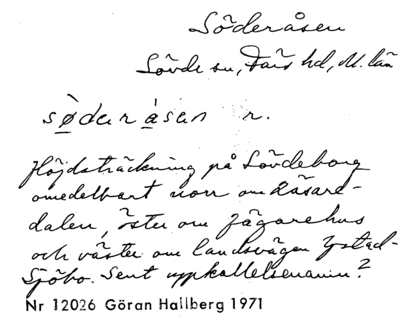 Söderåsen
Sövde sn, Färs hd, M. län
sø̱der á̱sen r.
Höjdsträckning på Sövdeborg
omedelbart norr om Råsare-
dalen, öster om Jägarehus
och väster om landsvägen Ystad-
Sjöbo. Sent uppkallelsenamn?
Nr 12026 Göran Hallberg 1971